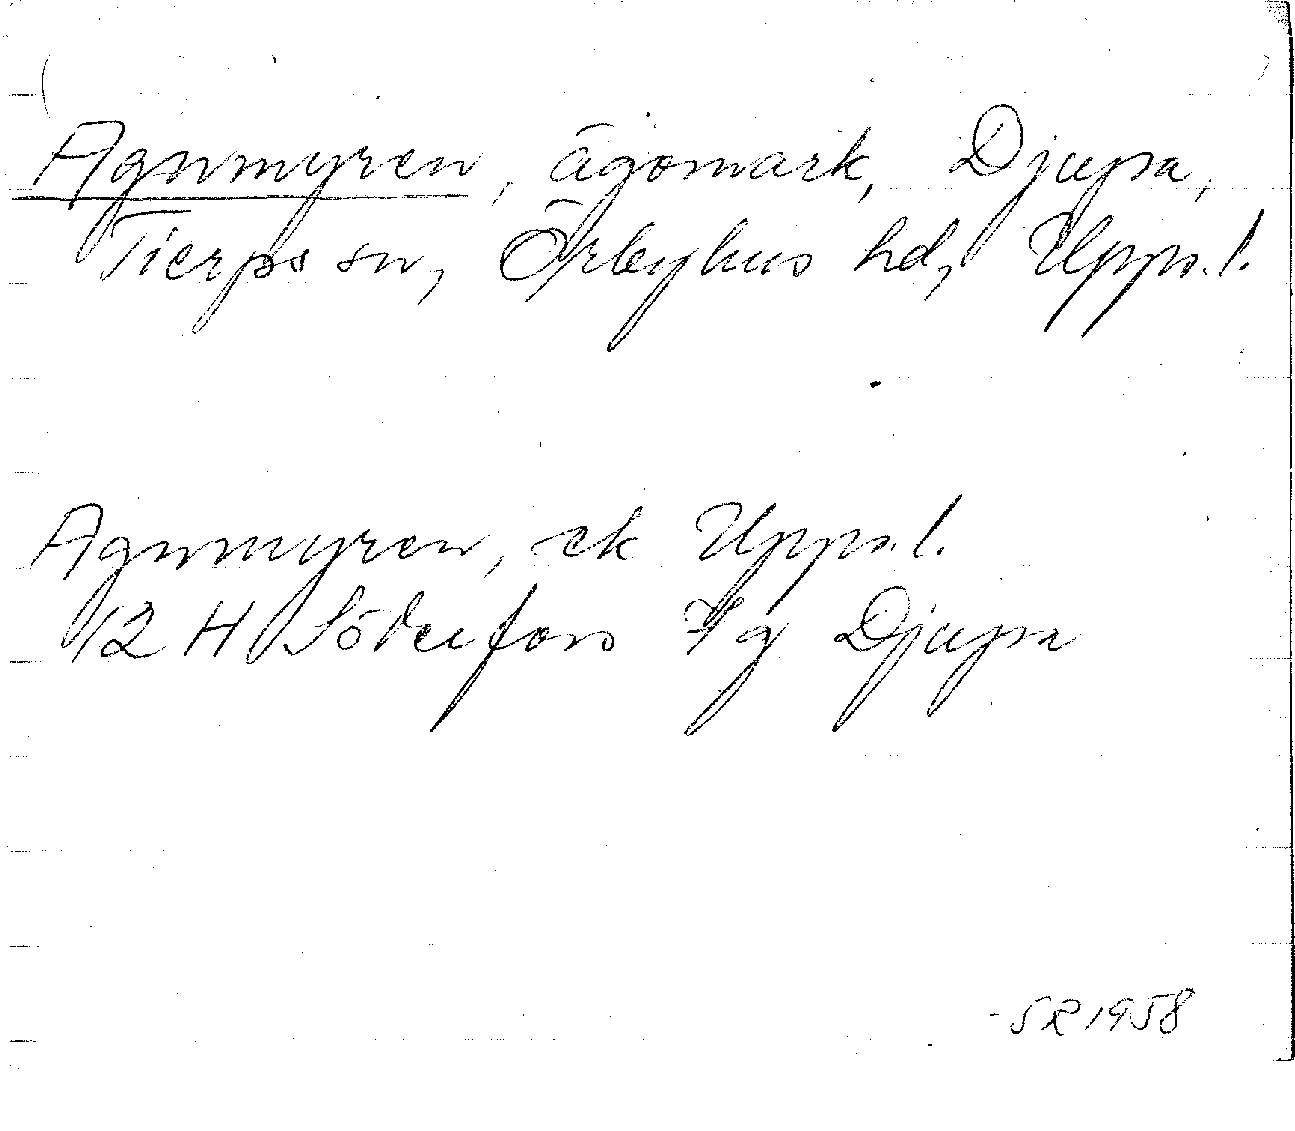 Agnmyren, ägomark, Djupa,
Tierps sn, Örbyhus hd, Upps.l.
Agnmyren, ek Upps.l.
12 H Söderfors 7 g Djupa
SR 1958